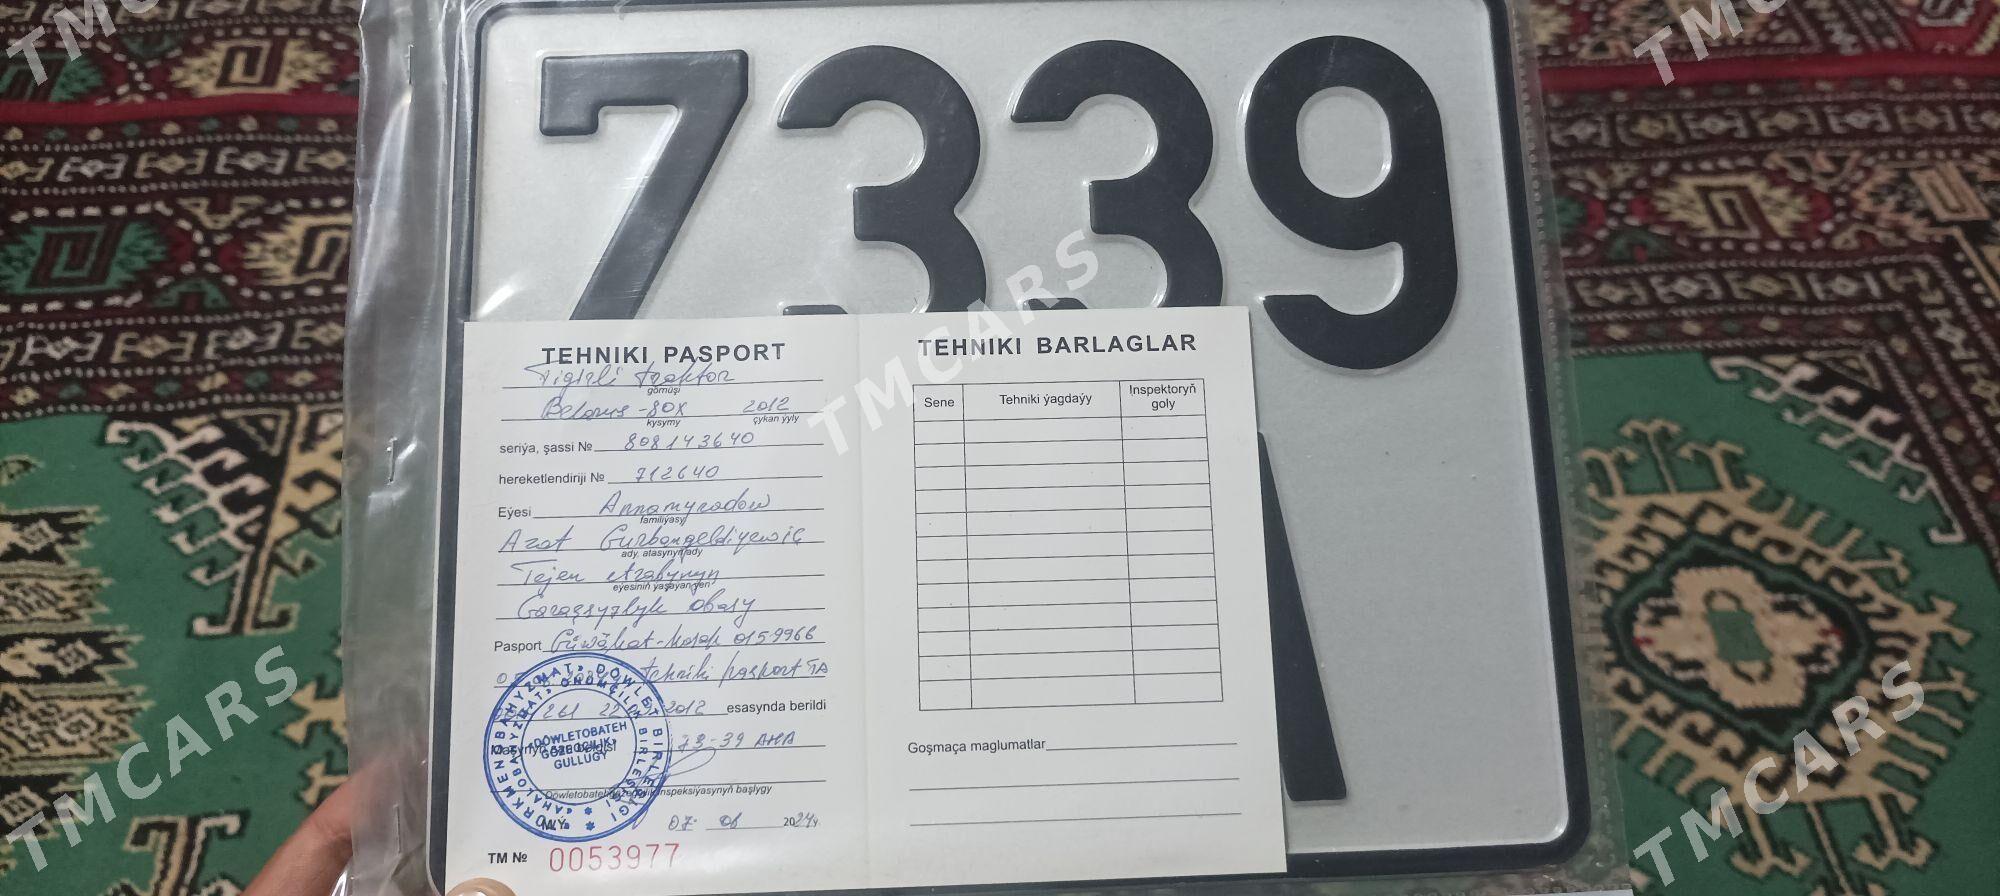 7339
TEHNIKI PASPORT
Tigirli traktor
görnüşi
Belarus-80X 2012
kysymy çykan ýyly
seriýa, şassi № 808143640
hereketlendiriji № 712640
Eýesi Annamyradow
familiýasy
Azat Gurbangeldiýewiç
ady, atasynyň ady
Tejen etrabynyň
eýesiniň ýaşaýan ýeri
Garaşsyzlyk obasy
Pasport 0159966
tehniki pasport TA
261 22 2012 esasynda berildi
Maşynyň belgisi 73-39 AHA
Döwletobatehgözegçilik inspeksiýasynyň başlygy
M.Ý. 07. 06 2024ý.
TM № 0053977
TÜRKMENOBAHYZMAT DÖWLET BIRLEŞIGI
AHALOBAHYZMAT ÖNÜMÇILIK BIRLEŞIGI
«DÖWLETOBATEH
GÖZEGÇILIK»
GULLUGY
TEHNIKI BARLAGLAR
Sene Tehniki ýagdaýy Inspektoryň
goly
Goşmaça maglumatlar
TMCARS
TMCARS
TMCARS
TMCARS
TMCARS